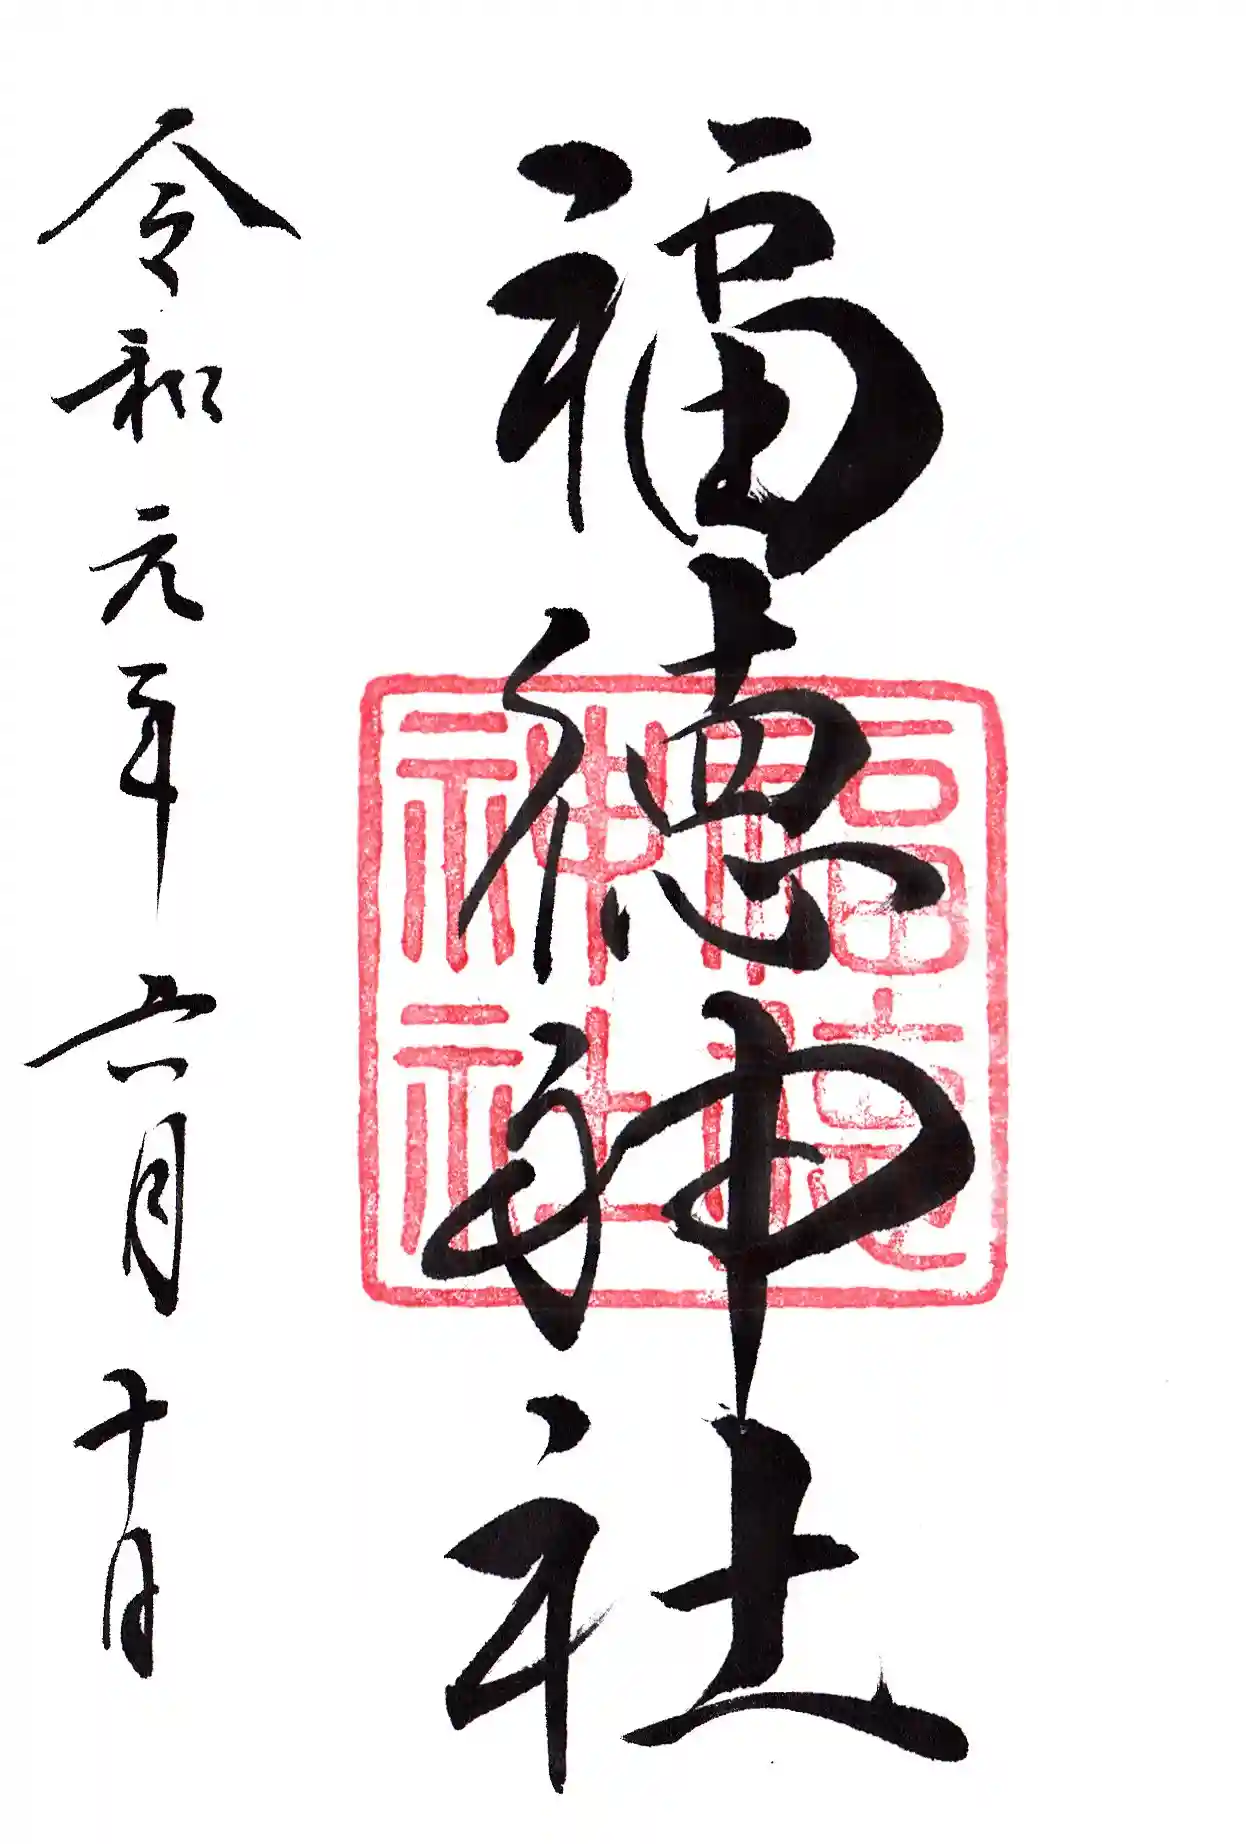 福徳神社
福徳
神社
令和元年六月十日